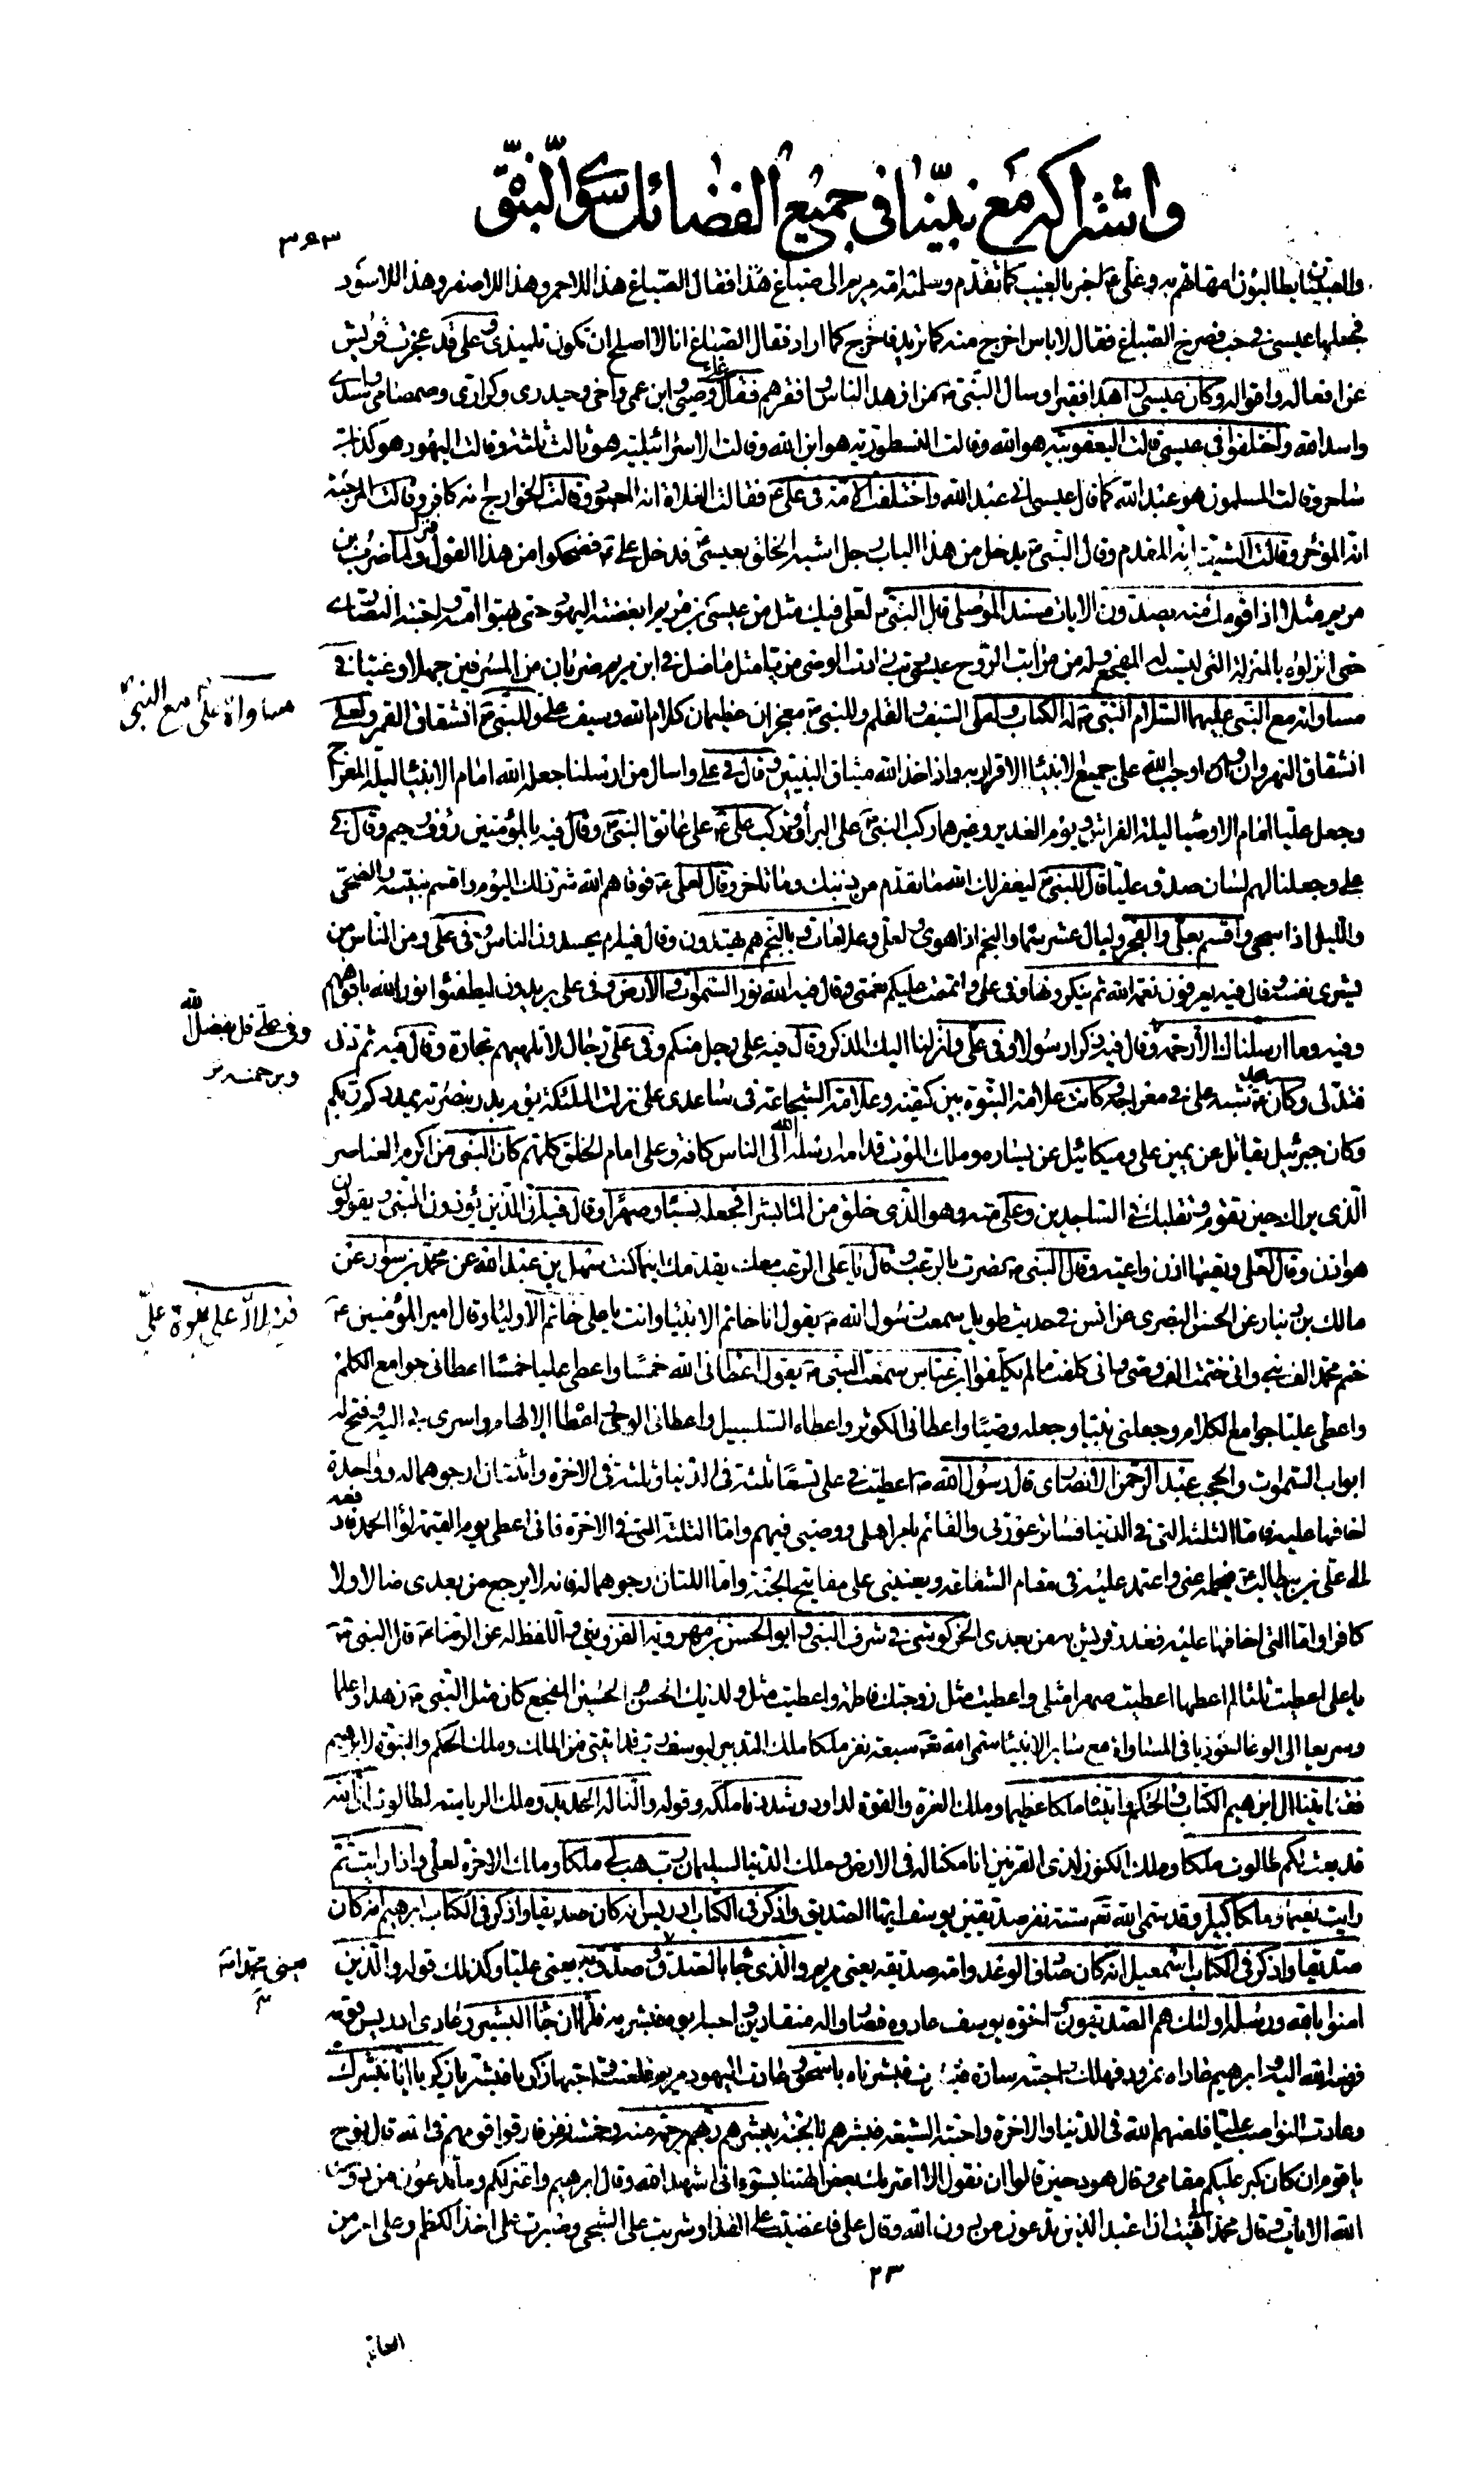 واشتراكه مع نبينا في جميع الفضائل سوى النبوة
٣٤٣
يطالبون امهاتهم به وعلي ع اخبر بالغيب كما تقدم وسلمته امه مريم الى صباغ هذا فقال الصباغ هذا للاحمر وهذا للاصفر وهذا للاسود
فجعلها عيسى في حب فصرخ الصباغ فقال لا باس اخرج منه كما تريد فاخرج كما اراد فقال الصباغ انا لا اصلح ان تكون تلميذي وعلي قد عجزت قريش
عن افعاله واقواله وكان عيسى زاهدا فقيرا وسال النبي ص من ازهد الناس وافقرهم فقال علي وصيي وابن عمي واخي وحيدري وكراري وصمصامي واسدي
واسد الله واختلفوا في عيسى قالت اليعقوبية هو الله وقالت النسطورية هو ابن الله وقالت الاسرائيلية هو ثالث ثلثة وقالت اليهود هو كذاب
ساحر وقالت المسلمون هو عبد الله كما قال عيسى اني عبد الله واختلفت الامة في علي ع فقالت الغلاة انه المعبود وقالت الخوارج انه كافر وقالت المرجئة
انه المؤخر وقالت الشيعة انه المقدم وقال النبي ص يدخل من هذا الباب رجل اشبه الخلق بعيسى فدخل علي ع فضحكوا من هذا القول فنزل ولما ضرب ابن
مريم مثلا اذا قومك منه يصدون الايات مسند الموصلي قال النبي ص لعلي فيك مثل من عيسى بن مريم ابغضته اليهود حتى بهتوا امه واحبته النصارى
حتى انزلوه بالمنزلة التي ليست له المفجع وله من مراتب الروح عيسى رتب زادت الوصي مزيا مثل ما ضل في ابن مريم ضربان من المسرفين جهلا وغيا في
مساواته مع النبي عليهما السلام النبي ص له الكتاب ولعلي السيف والقلم وللنبي ص معجزان عظيمان كلام الله وسيف علي وللنبي ص انشقاق القمر ولعلي
انشقاق النهروان اوجب الله على جميع الانبياء الاقرار به واذ اخذ الله ميثاق النبيين وقال في علي واسال من ارسلنا جعله الله امام الانبياء ليلة المعراج
وجعل عليا امام الاوصياء ليلة الفراش ويوم الغدير وغيرهما ركب النبي ص على البراق وركب علي ع على عاتق النبي ص وقال فيه بالمؤمنين رؤف رحيم وقال في
علي وجعلنا لهم لسان صدق عليا قال للنبي ص ليغفر لك الله ما تقدم من ذنبك وما تاخر وقال لعلي ع فوقاهم الله شر ذلك اليوم واقسم بنبيه والضحى
والليل اذا سجى واقسم بعلي والفجر وليال عشر سماه والنجم اذا هوى ولعلي وعلامات وبالنجم هم يهتدون وقال فيه ام يحسدون الناس وفي علي ومن الناس من
يشري نفسه وقال فيه يعرفون نعمة الله ثم ينكرونها وفي علي واتممت عليكم نعمتي وقال فيه الله نور السموات والارض وفي علي يريدون ليطفئوا نور الله بافواههم
وفيه وما ارسلناك الا رحمة وقال فيه ذكرا رسولا وفي علي وانزلنا اليك الذكر وقال فيه على رجل منكم وفي علي رجال لا تلهيهم تجارة وقال فيه ثم دنى
فتدلى وكان بعد تشبه علي في معراجه كانت علامة النبوة بين كتفيه وعلامة الشجاعة في ساعدي علي نزلت الملئكة يوم بدر بنصرته يمددكم ربكم
وكان جبرئيل يقاتل عن يمين علي وميكائيل عن يساره وملك الموت قدامه ارسله الله الى الناس كافة وعلي امام الخلق كلهم كان النبي من اكرم العناصر
الذي يراك حين تقوم وتقلبك في الساجدين وعلي منه وهو الذي خلق من الماء بشرا فجعله نسبا وصهرا وقال فيه الذين يؤذون النبي ويقولون
هو اذن وقال لعلي وتعيها اذن واعية وقال النبي ص نصرت بالرعب وقال يا علي الرعب معك يقدمك اينما كنت سهل بن عبد الله عن محمد بن سوار عن
مالك بن دينار عن الحسن البصري عن انس في حديث طويل سمعت رسول الله ص يقول انا خاتم الانبياء وانت يا علي خاتم الاولياء وقال امير المؤمنين ع
ختم محمد الف نبي واني ختمت الف وصي واني كلفت ما لم يكلفوا ابن عباس سمعت النبي ص يقول اعطاني الله خمسا واعطى عليا خمسا اعطاني جوامع الكلم
واعطى عليا جوامع الكلام وجعلني نبيا وجعله وصيا واعطاني الكوثر واعطاه السلسبيل واعطاني الوحي واعطاه الالهام واسرى بي اليه وفتح له
ابواب السموات والحجب عبد الرحمن الانصاري قال رسول الله ص اعطيت في علي تسعا ثلثة في الدنيا وثلثة في الاخرة واثنتان ارجوهما له وواحدة
اخافها عليه فاما الثلثة التي في الدنيا فساتر عورتي والقائم بامر اهلي ووصيي فيهم واما الثلثة التي في الاخرة فاني اعطى يوم القيمة لواء الحمد فادفعه
الى علي بن ابي طالب فيحمله عني واعتمد عليه في مقام الشفاعة ويعينني على مفاتيح الجنة واما اللتان ارجوهما له فانه لا يرجع من بعدي ضالا ولا
كافرا واما التي اخافها عليه فغدر قريش به من بعدي الخركوشي في شرف النبي وابو الحسن بن مهرويه القزويني واللفظ له عن الرضا ع قال النبي ص
يا علي اعطيت ثلثا لم اعطها اعطيت صهرا مثلي واعطيت مثل زوجتك فاطمة واعطيت مثل ولديك الحسن والحسين المفجع كان مثل النبي ص زهدا وعلما
وسريعا الى الوغا احوذيا في المساواة مع سائر الانبياء سمى الله تع سبعة نفر ملكا ملك التدبير ليوسف رب قد اتيتني من الملك وملك الحكم والنبوة لابرهيم
فقد اتينا ال ابرهيم الكتاب والحكمة واتيناهم ملكا عظيما وملك العزة والقوة لداود وشددنا ملكه وقوله والنا له الحديد وملك الرياسة لطالوت ان الله
قد بعث لكم طالوت ملكا وملك الكنوز لذي القرنين انا مكنا له في الارض وملك الدنيا لسليمان رب هب لي ملكا وملك الاخرة لعلي واذا رايت ثم
رايت نعيما وملكا كبيرا وقد سمى الله تع ستة نفر صديقين يوسف ايها الصديق واذكر في الكتاب ادريس انه كان صديقا واذكر في الكتاب ابرهيم انه كان
صديقا واذكر في الكتاب اسمعيل انه كان صادق الوعد وامه صديقة يعني مريم والذي جاء بالصدق وصدق به يعني عليا وكذلك قوله والذين
امنوا بالله ورسله اولئك هم الصديقون اخوة يوسف عادوه فصاروا له منقادين واحبه ابوه فبشر به فلما ان جاء البشير وعادى ادريس قومه
فرفعه الله اليه وابرهيم عاداه نمرود فهلك واحبته سارة فبشرناه باسحق وعادت اليهود مريم فلعنت واحبها زكريا فبشر يا زكريا انا نبشرك
وعادت النواصب عليا فلعنهم الله في الدنيا والاخرة واحبته الشيعة فبشرهم بالجنة يبشرهم ربهم برحمة منه وخمسة نفر فارقوا قومهم في الله قال نوح
يا قوم ان كان كبر عليكم مقامي وقال هود حين قالوا ان نقول الا اعتريك بعض الهتنا بسوء اني اشهد الله وقال ابرهيم واعتزلكم وما تدعون من دون
الله الايات وقال محمد نهيت ان اعبد الذين تدعون من دون الله وقال علي فاغضيت على القذى وشربت على الشجى وصبرت على اخذ الكظم وعلى امر من
مساواة علي مع النبي
وفي علي قل بفضل الله
وبرحمته
٢٣